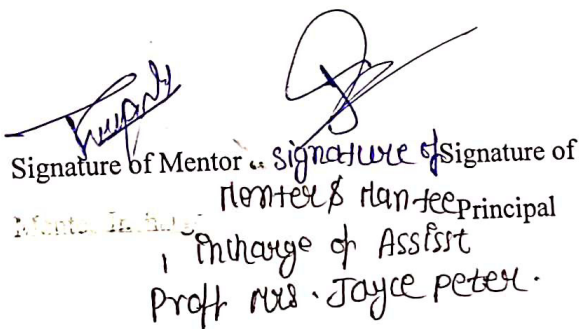 Signature of Mentor .. signature of Signature of
Menter & Mantee Principal
incharge of Assisst
Proff Mrs. Jayce peter.